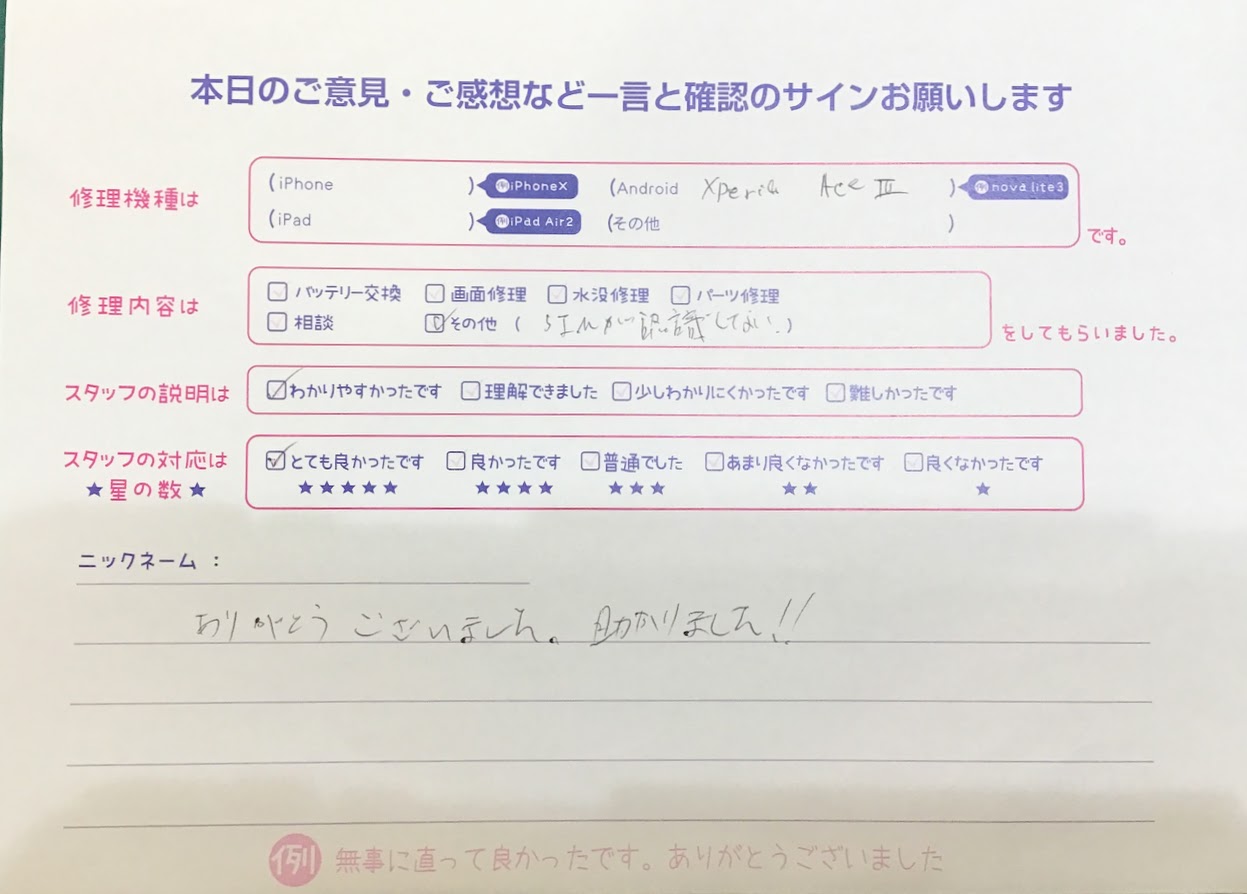 本日のご意見・ご感想など一言と確認のサインお願いします
修理機種は (iPhone ) 例iPhoneX (Android Xperia Ace III ) 例nova lite3
(iPad ) 例iPad Air2 (その他 ) です。
修理内容は □バッテリー交換 □画面修理 □水没修理 □パーツ修理
□相談 ☑その他 ( SIMが認識しない。) をしてもらいました。
スタッフの説明は ☑わかりやすかったです □理解できました □少しわかりにくかったです □難しかったです
スタッフの対応は ☑とても良かったです □良かったです □普通でした □あまり良くなかったです □良くなかったです
★星の数★ ★★★★★ ★★★★ ★★★ ★★ ★
ニックネーム：
ありがとうございました。助かりました!!
例 無事に直って良かったです。ありがとうございました